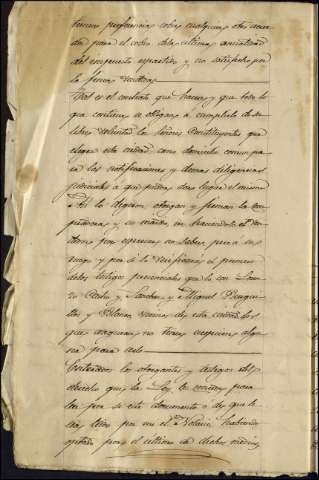 tercero preferencia sobre cualquier otro acree-
dor para el cobro de la última anualidad
del impuesto repartido y no satisfecho por
la finca
Tal es el contrato que hacen y que todo lo
que contiene se obligan a cumplirlo de su
libre voluntad los Señores Constituyentes que
eligen esta ciudad como domicilio comun pa-
ra las notificaciones y demas diligencias
judiciales a que pudiera dar lugar el mismo
Asi lo dijeron otorgan y firman la com-
pradora y su marido no haciendolo el Ven-
dedor por expresar no saber, pero a su
ruego y por si lo verificará el primero
de los testigos presenciales que lo son
Pedro y Sanchez, y Miguel
y Blanco, vecinos de esta ciudad los
que aseguran no tener excepcion algu-
na para serlo
Enterados los otorgantes y testigos del
derecho que la Ley les concede para
leer por si este documento o de que se
lea, leido por mi el Notario habiendo
optado por el ultimo de dichos medios,